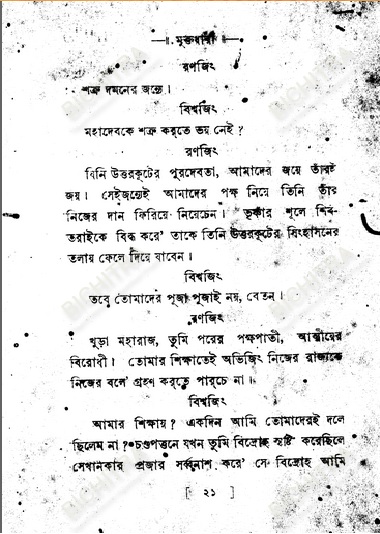 ॥ মুক্তধারা ॥
রণজিৎ
শত্রু দমনের জন্যে।
বিশ্বজিৎ
মহাদেবকে শত্রু করতে ভয় নেই?
রণজিৎ
যিনি উত্তরকূটের পুরদেবতা, আমাদের জয়ে তাঁরই
জয়। সেইজন্যেই আমাদের পক্ষ নিয়ে তিনি তাঁর
নিজের দান ফিরিয়ে নিয়েচেন। তৃষ্ণার শূলে শিব-
তরাইকে বিদ্ধ করে' তাকে তিনি উত্তরকূটের সিংহাসনের
তলায় ফেলে দিয়ে যাবেন॥
বিশ্বজিৎ
তবে তোমাদের পূজা পূজাই নয়, বেতন।
রণজিৎ
খুড়া মহারাজ, তুমি পরের পক্ষপাতী, আত্মীয়ের
বিরোধী। তোমার শিক্ষাতেই অভিজিৎ নিজের রাজ্যকে
নিজের বলে' গ্রহণ করতে পারচে না॥
বিশ্বজিৎ
আমার শিক্ষায়? একদিন আমি তোমাদেরই দলে
ছিলেম না? চণ্ডপত্তনে যখন তুমি বিদ্রোহ সৃষ্টি করেছিলে
সেখানকার প্রজার সর্ব্বনাশ করে' সে বিদ্রোহ আমি
[ ২১ ]
BICHITRA